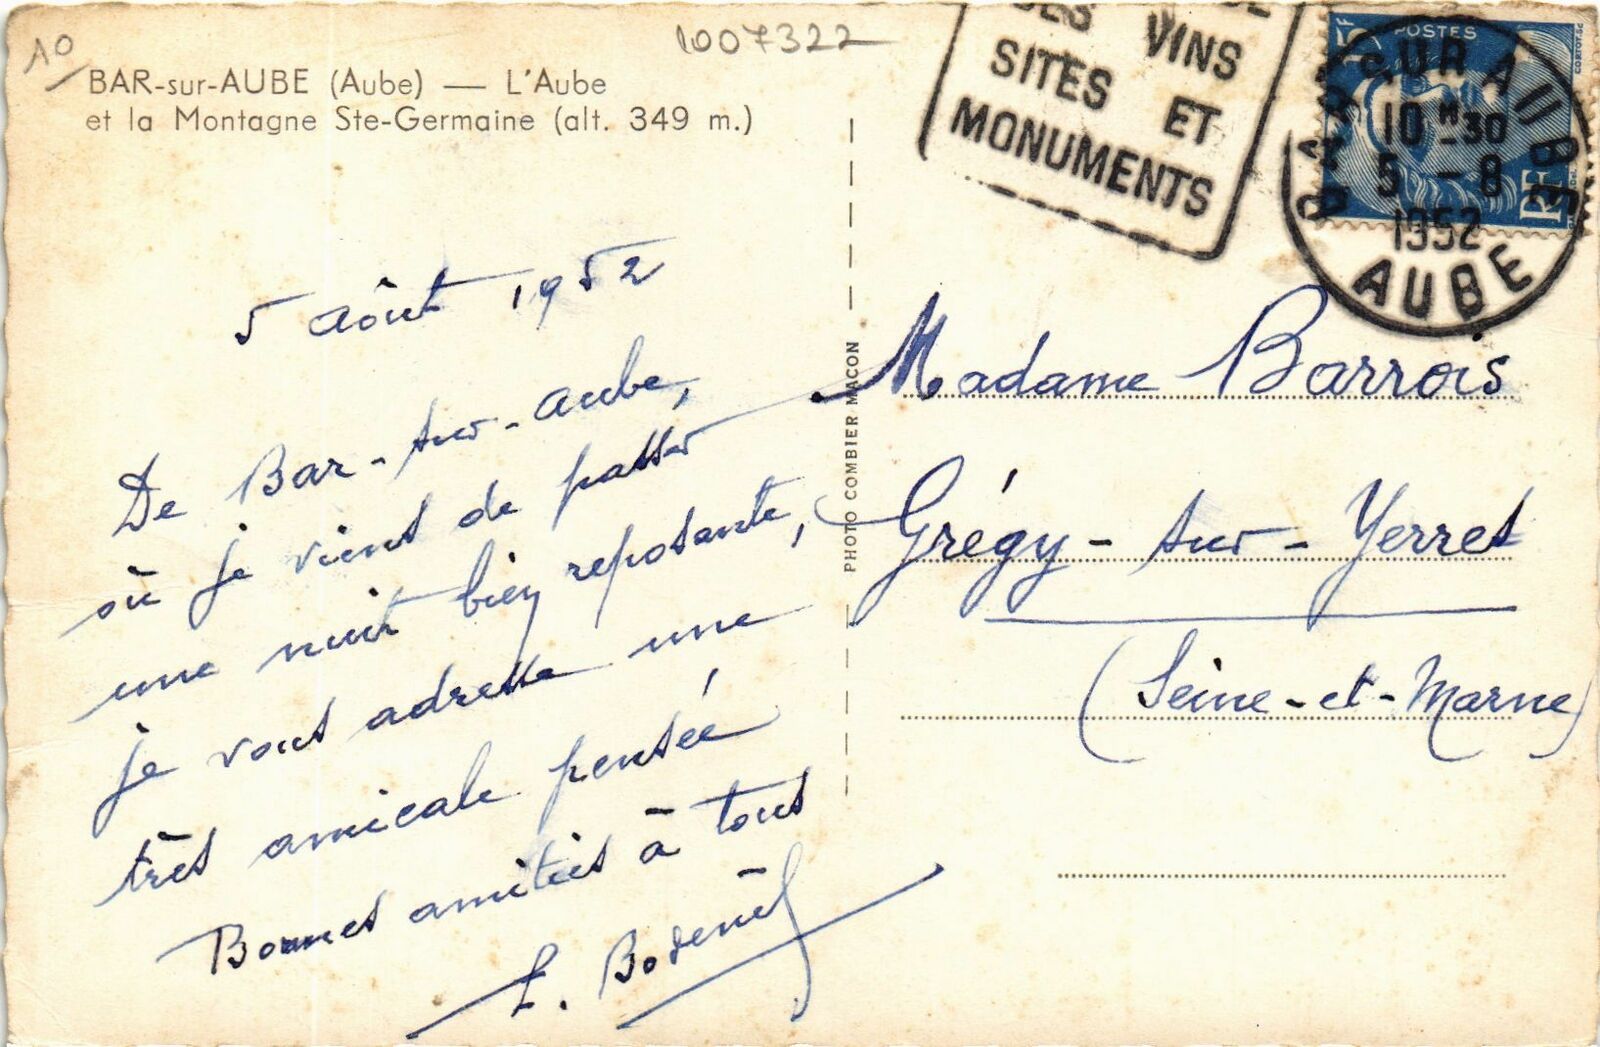 10
1007322
BAR-sur-AUBE (Aube) — L'Aube
et la Montagne Ste-Germaine (alt. 349 m.)
VINS
SITES ET
MONUMENTS
15F
POSTES
RF
BAR SUR AUBE
10 H -30
5 - 8
1952
AUBE
5 Août 1952
De Bar-sur-Aube,
où je viens de passer
une nuit bien reposante,
je vous adresse une
très amicale pensée
Bonnes amitiés à tous
PHOTO COMBIER MACON
Madame Barrois
Grégy-sur-Yerres
(Seine-et-Marne)